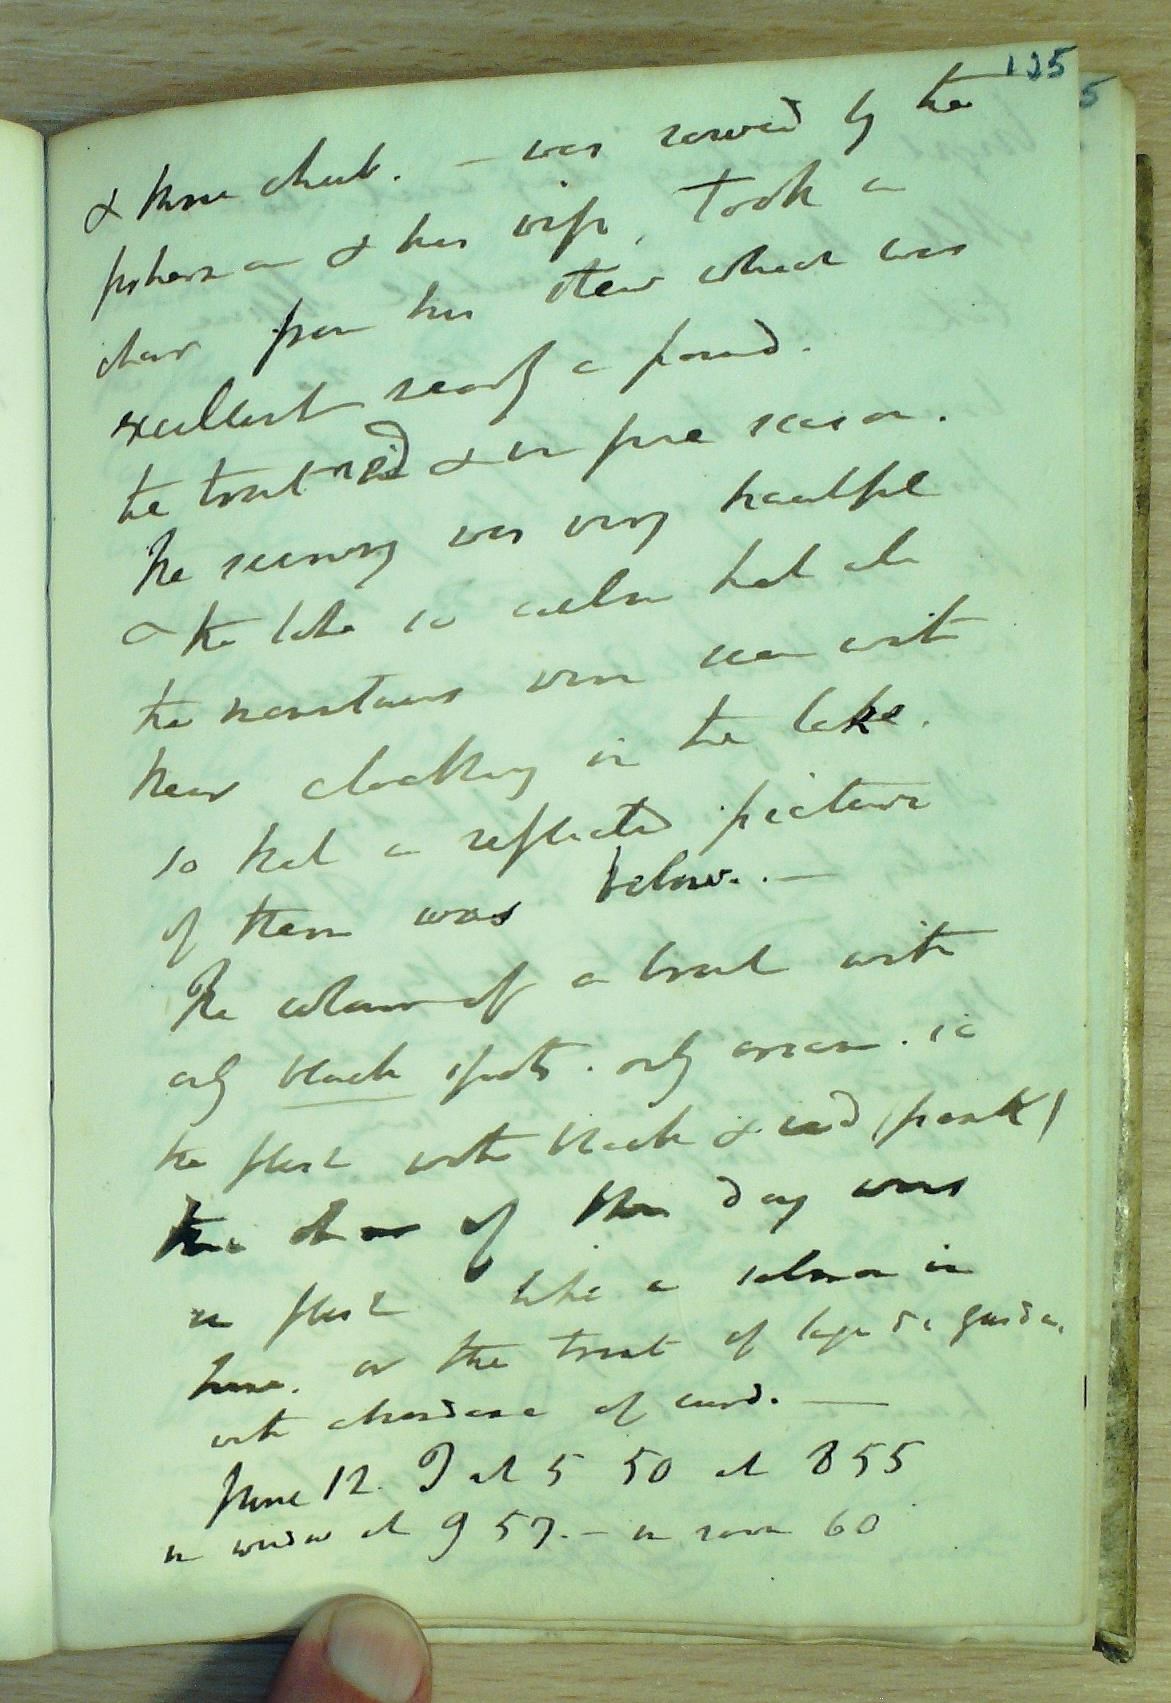 135
& three chub. – was rowed by the
fisherman & his wife, Took a
char from his stew which was
excellent nearly a pound.
the trout red & in fine season.
The scenery was very beautiful
& the lake so calm that all
the mountains were seen with
their clothing in the lake.
so that a reflected picture
of them was below. –
The colour of a trout with
only black spots. only cream. ie
the flesh with black & red (pink)
the char of this day was
in flesh like a salmon in
June. or the trout of lago di garda,
with abundance of curd. –
June 12. T at 5 50 at 8 55
in window at 9 57. – in room 60